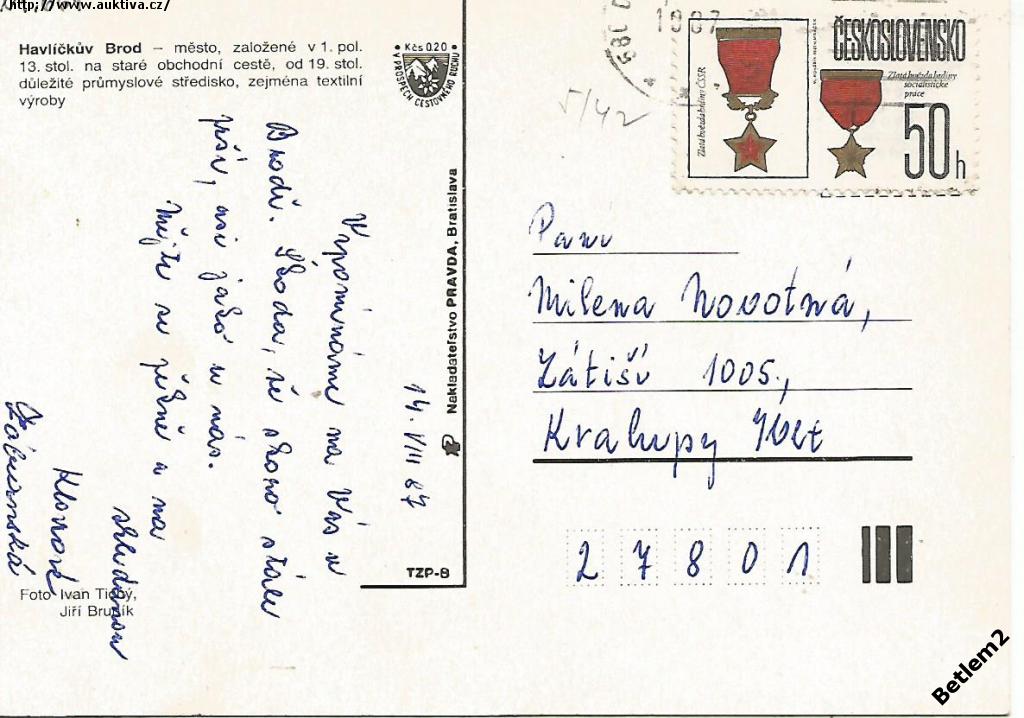 http://www.auktiva.cz/
Havlíčkův Brod – město, založené v 1. pol.
13. stol. na staré obchodní cestě, od 19. stol.
důležité průmyslové středisko, zejména textilní
výroby
Kčs 0.20
V PROSPĚCH CESTOVNÉHO RUCHU
14. VIII 87
Vzpomínáme na Vás v
Brodě. Škoda, že skoro stále
prší, asi jako u nás.
Mějte se pěkně a na
shledanou
Klorové
Nakladatelství PRAVDA, Bratislava
TZP-8
Foto Ivan Tichý,
Jiří Bruník
1987
5/42
ČESKOSLOVENSKO
Zlatá hvězda hrdiny ČSSR
Zlatá hvězda hrdiny
socialistické
práce
50 h
Paní
Milena Novotná,
Zátiší 1005,
Kralupy Vlt
27801
Betlem2